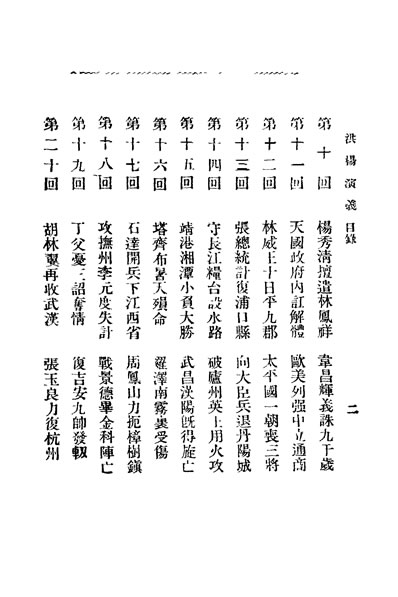 洪楊演義目錄
二
第十回 楊秀清擅遣林鳳祥 韋昌輝義誅九千歲
第十一回 天國政府內訌解體 歐美列强中立通商
第十二回 林威王十日平九郡 太平國一朝喪三將
第十三回 張總統計復浦口縣 向大臣兵退丹陽城
第十四回 守長江糧台設水路 破廬州英王用火攻
第十五回 靖港湘潭小負大勝 武昌漢陽旣得旋亡
第十六回 塔齊布暑天殞命 羅澤南霧裏受傷
第十七回 石達開兵下江西省 周鳳山力扼樟樹鎭
第十八回 攻撫州李元度失計 戰景德畢金科陣亡
第十九回 丁父憂三詔奪情 復吉安九帥發軔
第二十回 胡林翼再收武漢 張玉良力復杭州